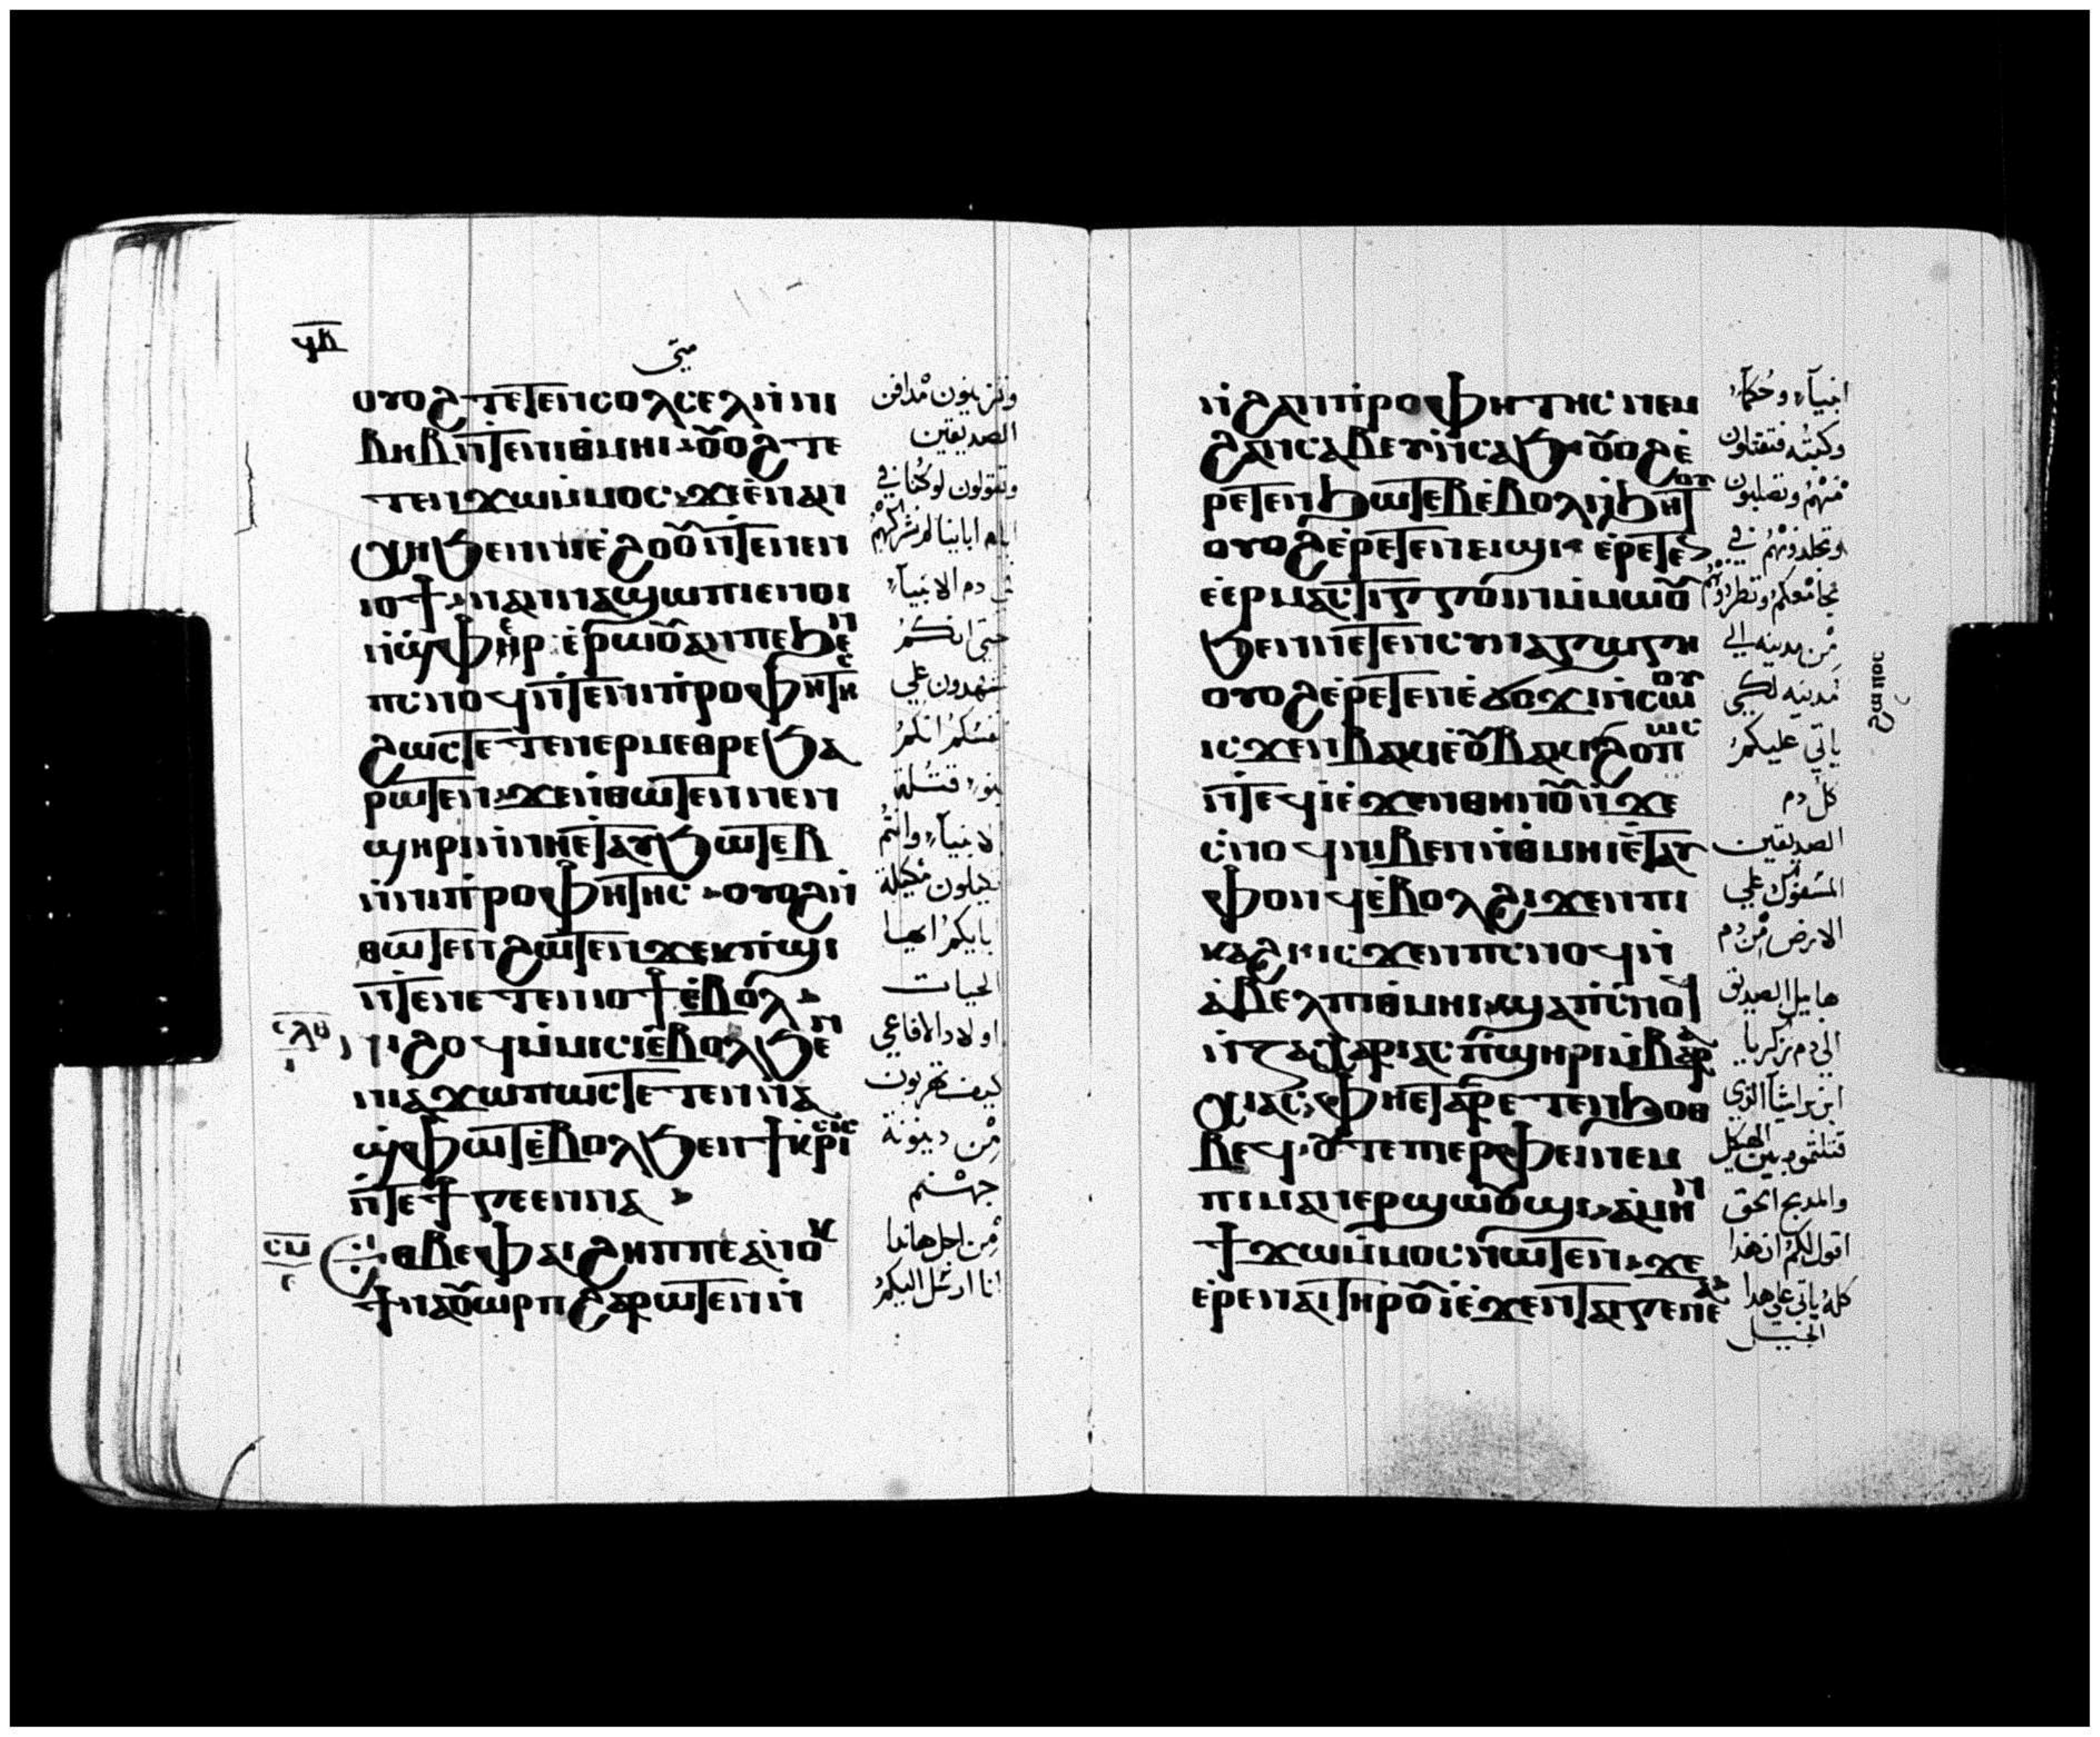 ϥⲃ
متى
ⲟⲩⲟϩ ⲧⲉⲧⲉⲛⲥⲟⲗⲥⲉⲗ ⲛ̀ⲛⲓ
ⲃⲏⲃ ⲛ̀ⲧⲉⲛⲓⲑⲙⲏⲓ ⲟⲩⲟϩ ⲧⲉ
ⲧⲉⲛϫⲱ ⲙ̀ⲙⲟⲥ ϫⲉ ⲉⲛⲁⲛ
ⲭⲏ ϧⲉⲛ ⲛⲓⲉ̀ϩⲟⲟⲩ ⲛ̀ⲧⲉ ⲛⲉⲛ
ⲓⲟϯ ⲛⲁⲛⲛⲁϣⲱⲡⲓ ⲉⲛⲟⲓ
ⲛ̀ϣⲫⲏⲣ ⲉ̀ⲣⲱⲟⲩ ⲁⲛ ⲡⲉ ϧⲉⲛ
ⲡⲥⲛⲟϥ ⲛ̀ⲧⲉ ⲛⲓⲡⲣⲟⲫⲏⲧⲏⲥ
ϩⲱⲥⲧⲉ ⲧⲉⲛⲉⲣⲙⲉⲑⲣⲉ ϧⲁ
ⲣⲱⲧⲉⲛ ϫⲉ ⲛ̀ⲑⲱⲧⲉⲛ ⲛⲉⲛ
ϣⲏⲣⲓ ⲛ̀ⲛⲏ ⲉⲧⲁⲩϧⲱⲧⲉⲃ
ⲛ̀ⲛⲓⲡⲣⲟⲫⲏⲧⲏⲥ ⲟⲩⲟϩ ⲛ̀
ⲑⲱⲧⲉⲛ ϩⲱⲧⲉⲛ ϫⲉⲕ ⲡ̀ϣⲓ
ⲛ̀ⲧⲉ ⲛⲉⲧⲉⲛⲓⲟϯ ⲉ̀ⲃⲟⲗ
ⲥⲗⲑ ⲛⲓϩⲟϥ ⲙ̀ⲙⲓⲥⲓ ⲉ̀ⲃⲟⲗ ϧⲉⲛ
ⲛⲓⲁ̀ϫⲱ ⲡⲱⲥ ⲧⲉⲧⲉⲛⲛⲁ
ϣ̀ⲫⲱⲧ ⲉ̀ⲃⲟⲗ ϧⲉⲛ ϯⲕⲣⲓⲥⲓⲥ
ⲛ̀ⲧⲉ ϯⲅⲉⲉⲛⲛⲁ
ⲥⲙ ⲉⲑⲃⲉ ⲫⲁⲓ ϩⲏⲡⲡⲉ ⲁ̀ⲛⲟⲕ
ϯⲛⲁⲟⲩⲱⲣⲡ ϩⲁⲣⲱⲧⲉⲛ ⲛ̀
وتزينون مدافن
الصديقين
وتقولون لو كنا في
ايام ابائنا لم نشركهم
في دم الانبيآء
حتى انكم
تشهدون علي
نفسكم انكم
بنو قتلة
الانبيآء وانتم
تكيلون مكيلة
بايكم ايها
الحيات
اولاد الافاعي
كيف تهربون
من دينونة
جهنم
من اجل هذا
انا ارسل اليكم
ⲛ̀ϩⲁⲛⲡⲣⲟⲫⲏⲧⲏⲥ ⲛⲉⲙ
ϩⲁⲛⲥⲁⲃⲉⲩ ⲛ̀ⲥⲁϧ ⲟⲩⲟϩ ⲉ̀
ⲣⲉⲧⲉⲛϧⲱⲧⲉⲃ ⲉ̀ⲃⲟⲗ ⲛ̀ϧⲏⲧⲟⲩ
ⲟⲩⲟϩ ⲉ̀ⲣⲉⲧⲉⲛⲉⲓϣⲓ ⲉ̀ⲣⲉⲧⲉ
ⲉⲣⲙⲁⲥⲧⲓⲅⲅⲟⲓⲛ ⲙ̀ⲙⲱⲟⲩ
ϧⲉⲛ ⲛⲉⲧⲉⲛⲥⲩⲛⲁⲅⲱⲅⲏ
ⲟⲩⲟϩ ⲉ̀ⲣⲉⲧⲉⲛⲉ̀ϭⲟϫⲓ ⲛ̀ⲥⲱⲟⲩ
ⲓⲥϫⲉⲛ ⲃⲁⲕⲓ ⲉ̀ⲟⲩⲃⲁⲕⲓ ϩⲟⲡⲱⲥ
ⲛ̀ⲧⲉϥⲓ̀ ⲉ̀ϫⲉⲛ ⲑⲏⲛⲟⲩ ⲛ̀ϫⲉ
ⲥ̀ⲛⲟϥ ⲛⲓⲃⲉⲛ ⲛ̀ⲑⲙⲏⲓ ⲉ̀ⲧⲁⲩ
ⲫⲟⲛϥ ⲉ̀ⲃⲟⲗ ϩⲓϫⲉⲛ ⲡⲓ
ⲕⲁϩⲓ ⲓⲥϫⲉⲛ ⲡⲥⲛⲟϥ ⲛ̀
ⲁ̀ⲃⲉⲗ ⲡⲓⲑⲙⲏⲓ ϣⲁ ⲡⲥ̀ⲛⲟϥ
ⲛ̀ⲍⲁⲭⲁⲣⲓⲁⲥ ⲡϣⲏⲣⲓ ⲙ̀ⲃⲁⲣⲁ
ⲭⲓⲁⲥ ⲫⲏ ⲉⲧⲁⲣⲉⲧⲉⲛϧⲟⲑ
ⲃⲉϥ ⲟⲩⲧⲉ ⲡⲉⲣⲫⲉⲓ ⲛⲉⲙ
ⲡⲓⲙⲁⲛⲉⲣϣⲱⲟⲩϣⲓ ⲁⲙⲏⲛ
ϯϫⲱ ⲙ̀ⲙⲟⲥ ⲛⲱⲧⲉⲛ ϫⲉ
ⲉ̀ⲣⲉ ⲛⲁⲓ ⲧⲏⲣⲟⲩ ⲓ̀ ⲉ̀ϫⲉⲛ ⲧⲁⲓⲅⲉⲛⲉⲁ
انبيآء وحكمآء
وكتبه فتقتلون
منهم وتصلبون
وتجلدونهم في
مجامعكم وتطردونهم
من مدينه الي
مدينه لكي
ياتي عليكم
كل دم
الصديقين
المسفوك علي
الارض من دم
هابيل الصديق
الي دم زكريا
ابن براشيآ الذي
قتلتموه بين الهيكل
والمدبح الحق
اقول لكم ان هذا
كله ياتي علي هذا
الجيل
ϩⲱⲡⲟⲥ